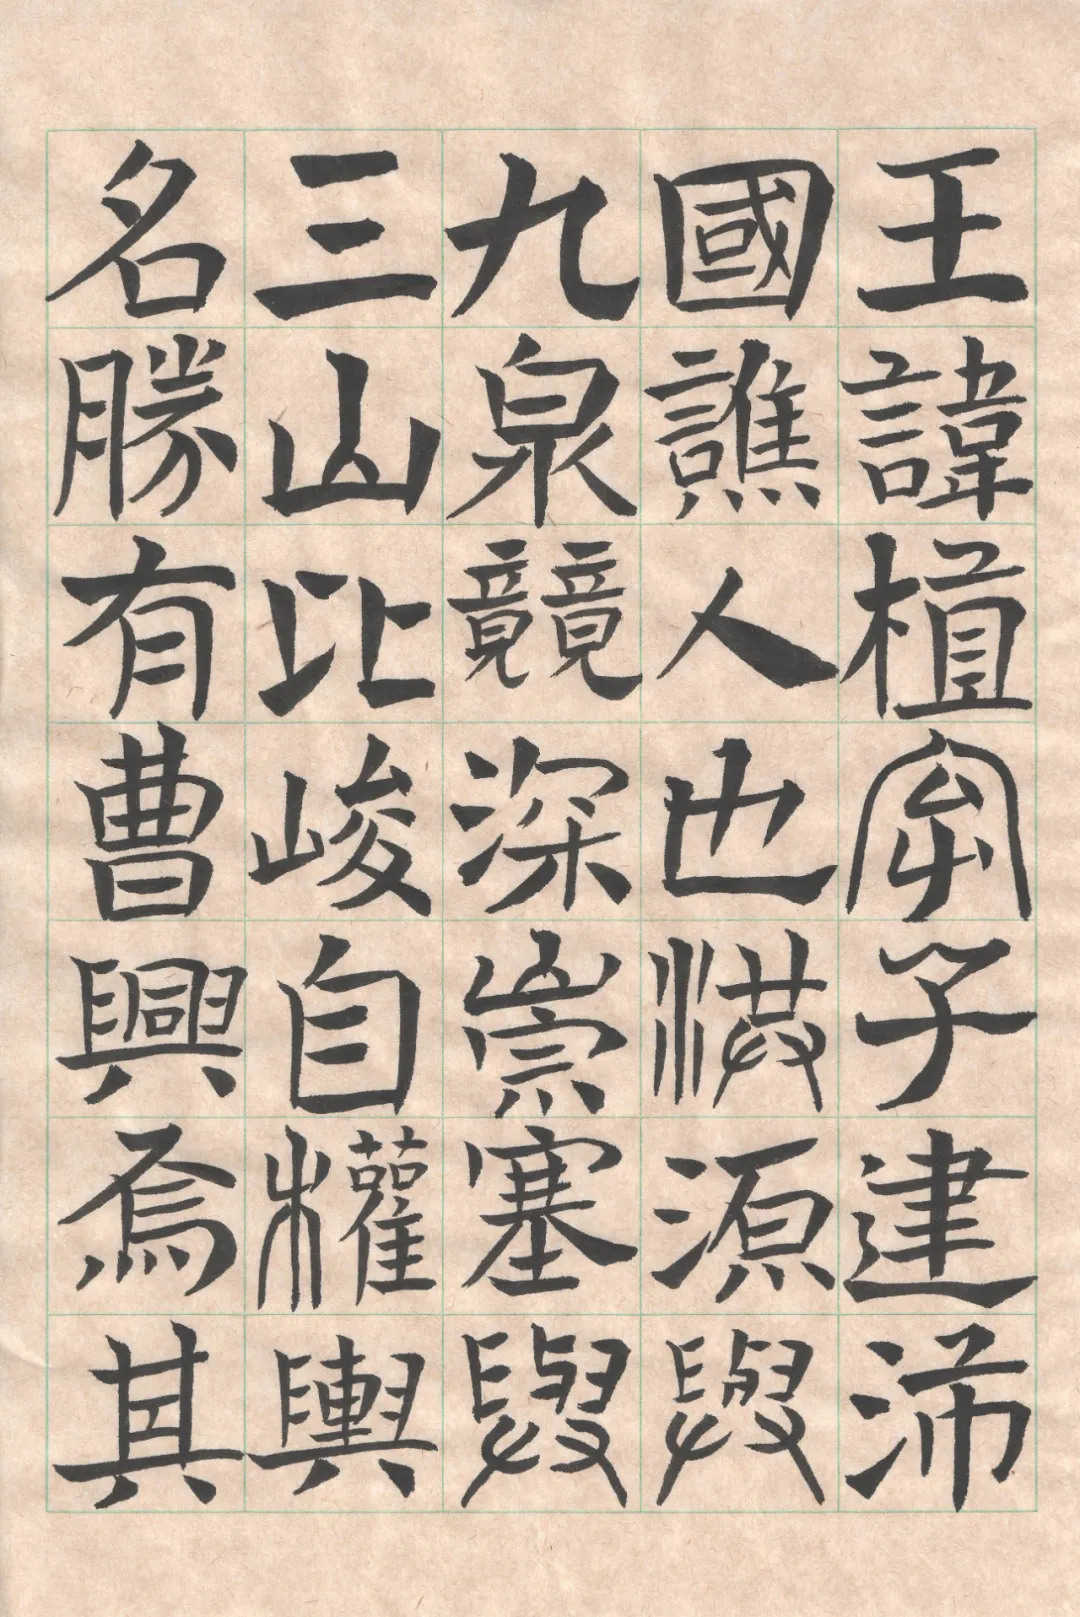 王諱植字子建沛
國譙人也洪源與
九泉競深崇塞與
三山比峻自權輿
名勝有曹興焉其